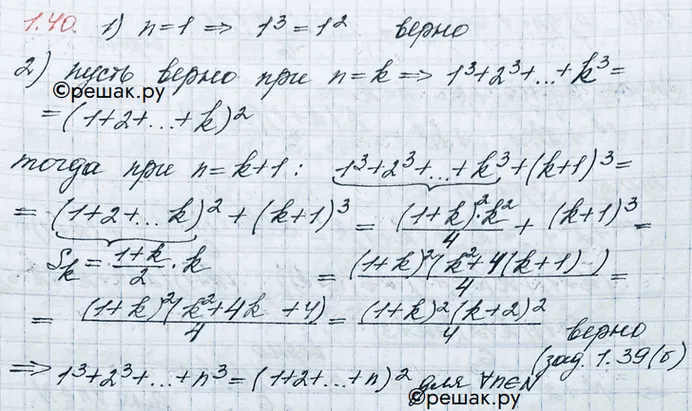 1.40. 1) n=1 ⇒ 1³ = 1² верно
2) пусть верно при n=k ⇒ 1³+2³+...+k³=
©решак.ру
=(1+2+...+k)²
тогда при n=k+1: 1³+2³+...+k³+(k+1)³=
= (1+2+...k)² + (k+1)³ = (1+k)²·k²/4 + (k+1)³ =
S_k = (1+k)/2 · k = (1+k)²(k²+4(k+1))/4 =
= (1+k)²(k²+4k+4)/4 = (1+k)²(k+2)²/4 верно
(зад. 1.39(б)
⇒ 1³+2³+...+n³ = (1+2+...+n)² для ∀n∈N
©решак.ру